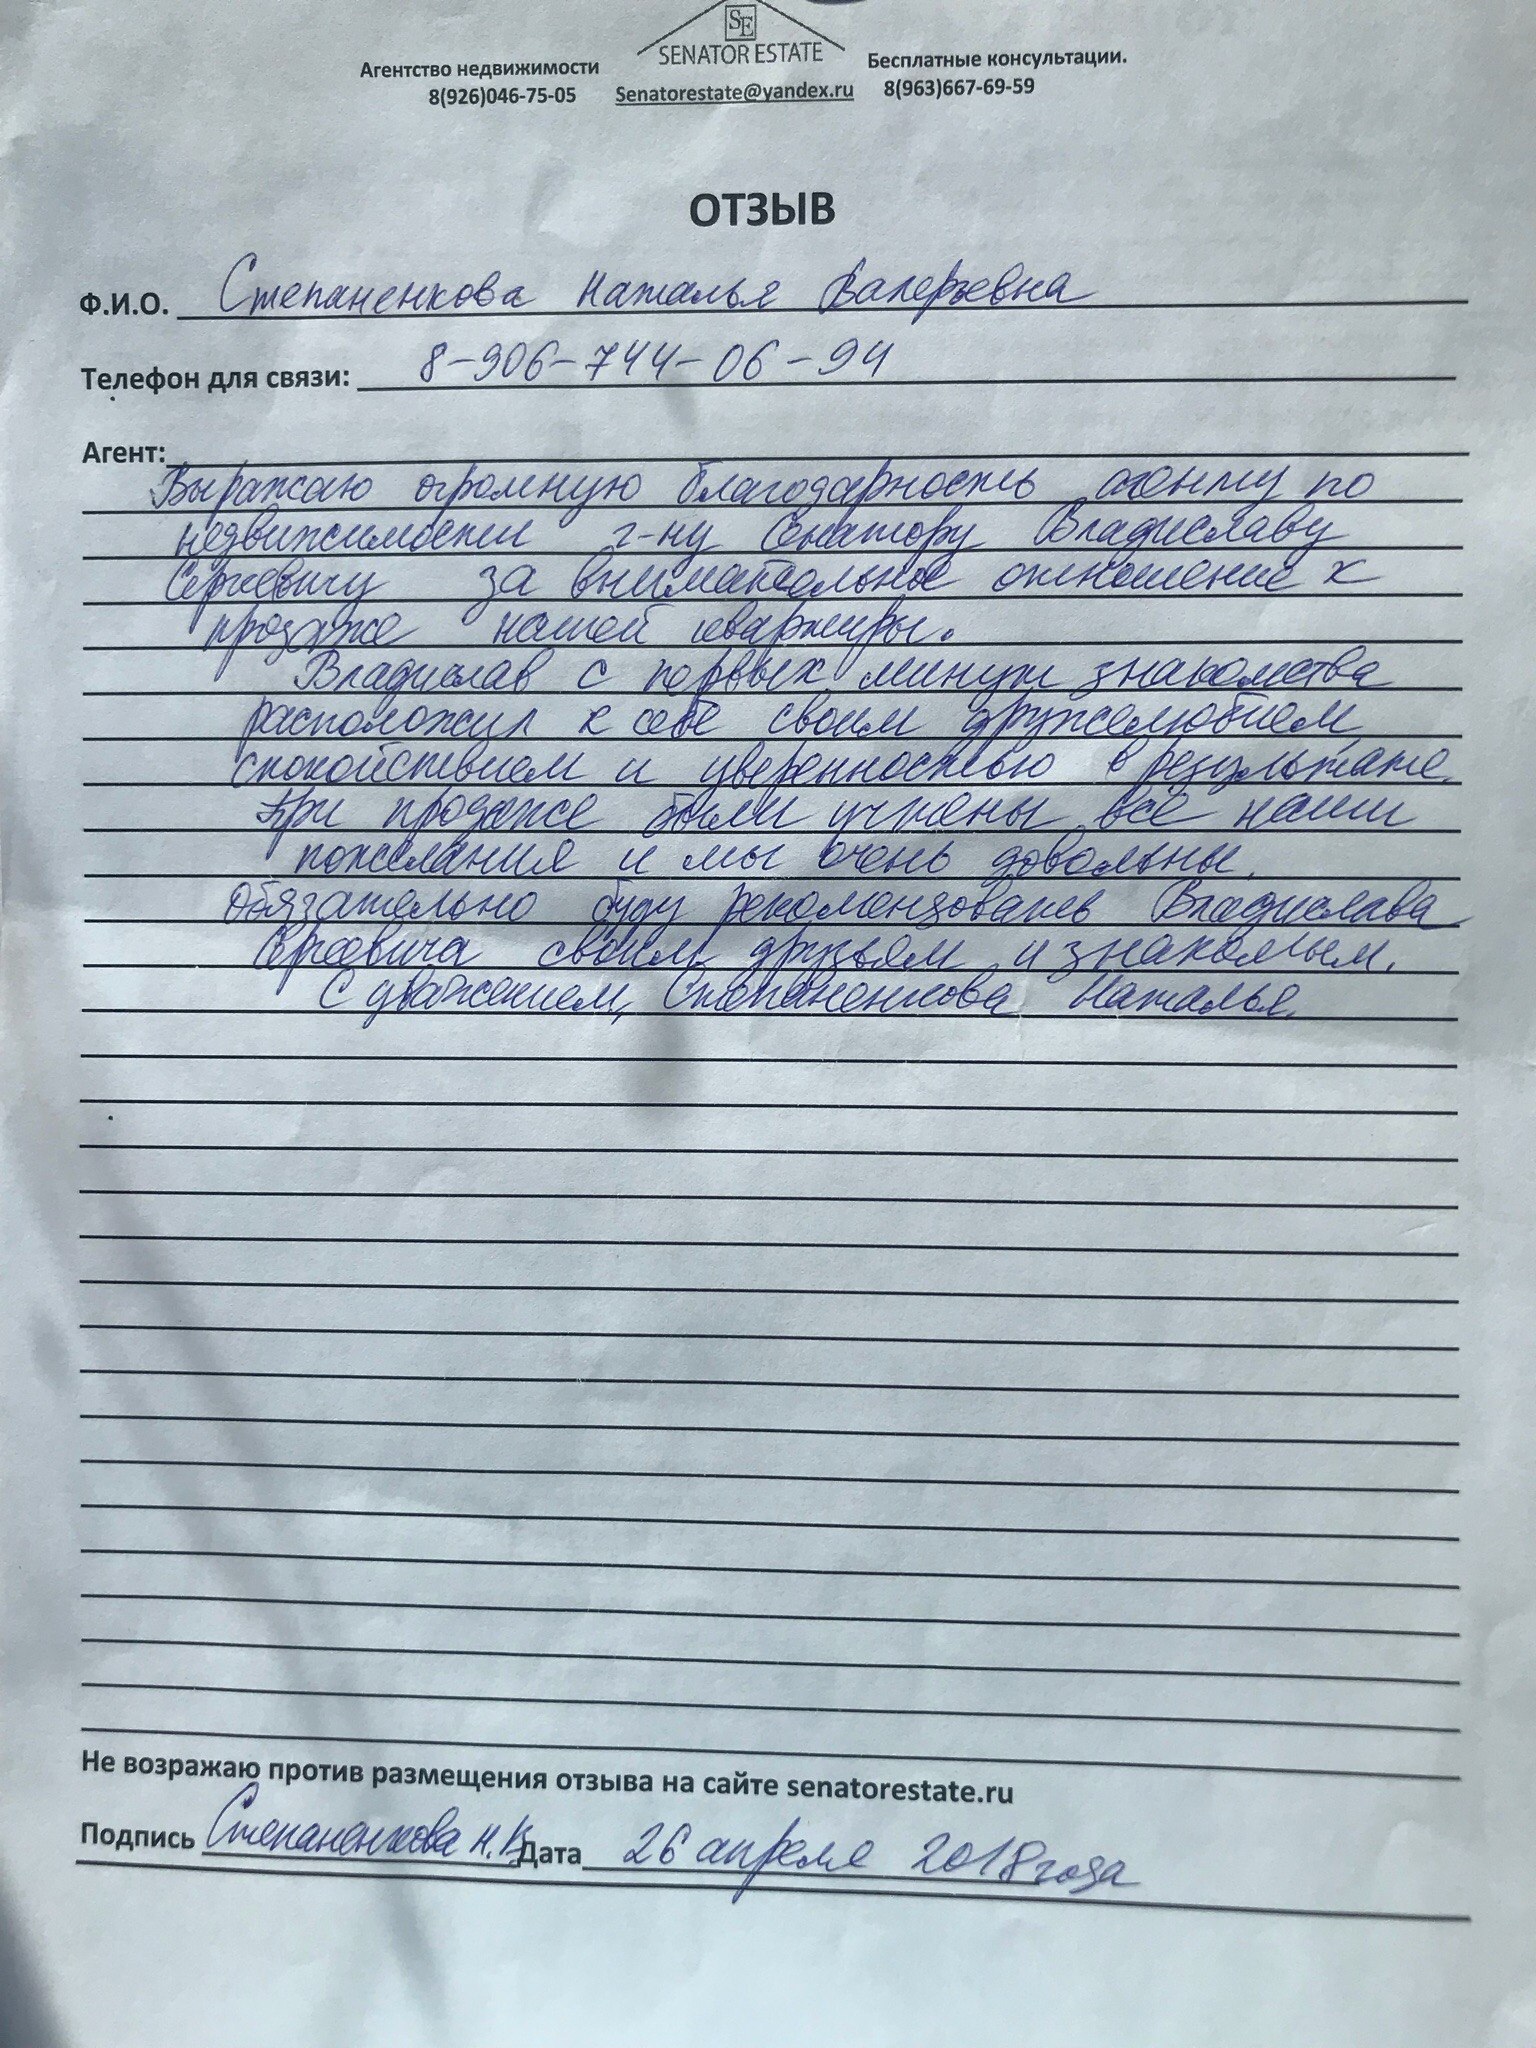 SE
SENATOR ESTATE
Агентство недвижимости
8(926)046-75-05
Senatorestate@yandex.ru
Бесплатные консультации.
8(963)667-69-59
ОТЗЫВ
Ф.И.О. Степаненкова Наталья Валерьевна
Телефон для связи: 8-906-744-06-94
Агент:
Выражаю огромную благодарность агенту по
недвижимости г-ну Сенатору Владиславу
Сергеевичу за внимательное отношение к
продаже нашей квартиры.
Владислав с первых минут знакомства
расположил к себе своим дружелюбием,
спокойствием и уверенностью в результате.
При продаже были учтены все наши
пожелания и мы очень довольны.
Обязательно буду рекомендовать Владислава
Сергеевича своим друзьям и знакомым.
С уважением, Степаненкова Наталья.
Не возражаю против размещения отзыва на сайте senatorestate.ru
Подпись Степаненкова Н.В. Дата 26 апреля 2018 года